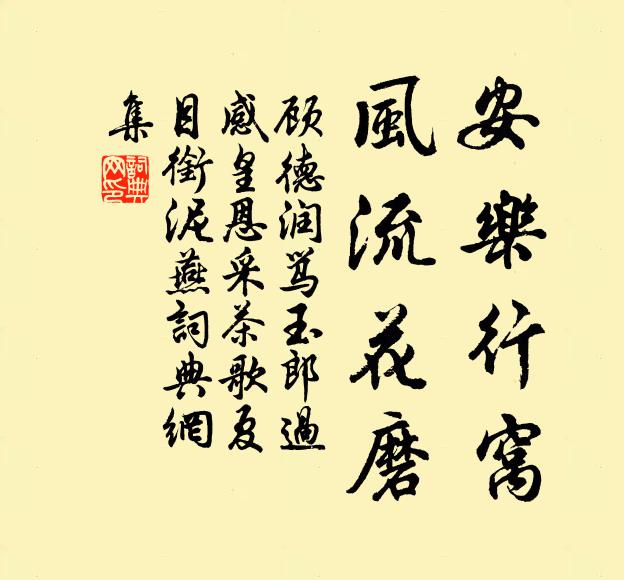 安樂行窩
風流花磨
顾德润骂玉郎過
感皇恩采茶歌夏
目銜泥燕詞典網
集
詞典網印